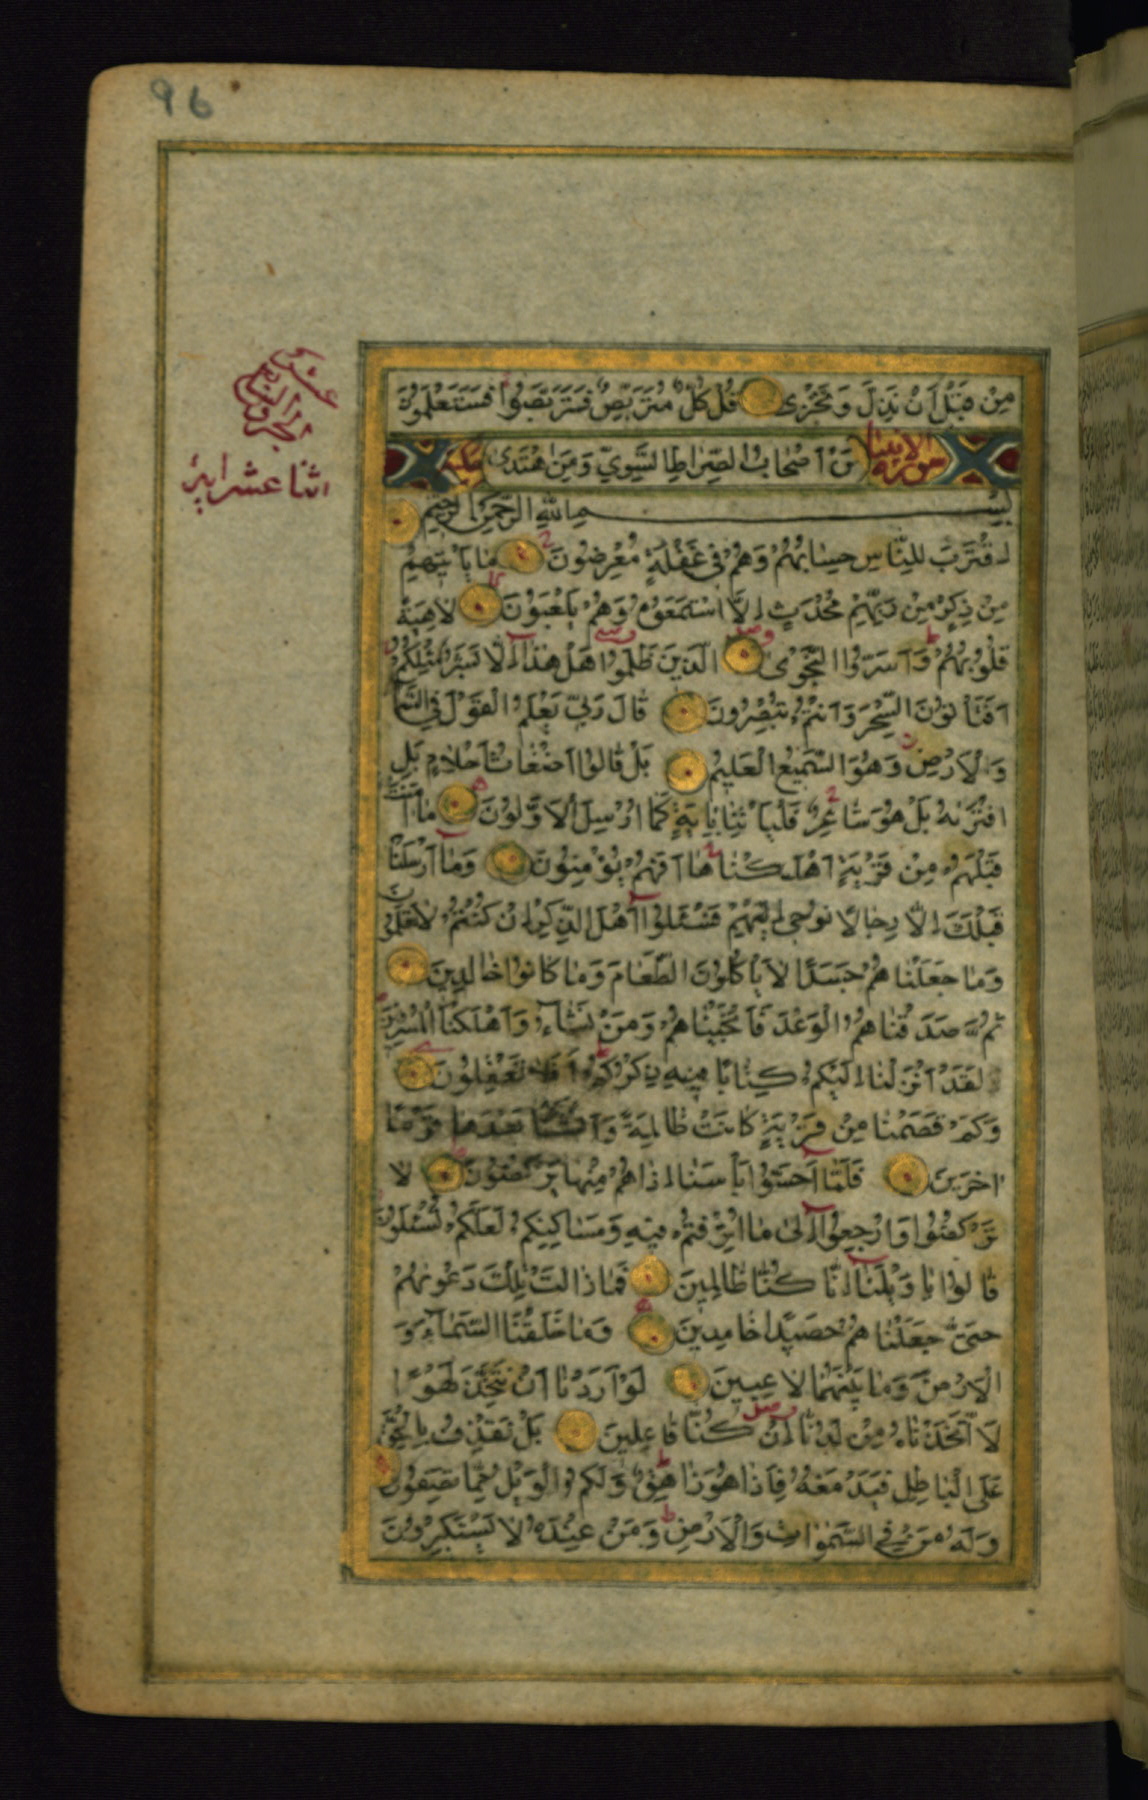 96
مِنْ قَبْلِ اَنْ نَذِلَّ وَنَخْزٰى قُلْ كُلٌّ مُتَرَبِّصٌ فَتَرَبَّصُوا فَسَتَعْلَمُونَ
سورة الانبيا مَنْ اَصْحَابُ الصِّرَاطِ السَّوِيِّ وَمَنِ اهْتَدٰى مكية
الجزو
اثنا عشر اية
بِسْمِ اللّٰهِ الرَّحْمٰنِ الرَّحِيمِ
اِقْتَرَبَ لِلنَّاسِ حِسَابُهُمْ وَهُمْ فِي غَفْلَةٍ مُعْرِضُونَ مَا يَأْتِيهِمْ
مِنْ ذِكْرٍ مِنْ رَبِّهِمْ مُحْدَثٍ اِلَّا اسْتَمَعُوهُ وَهُمْ يَلْعَبُونَ لَاهِيَةً
قُلُوبُهُمْ وَاَسَرُّوا النَّجْوٰى الَّذِينَ ظَلَمُوا هَلْ هٰذَا اِلَّا بَشَرٌ مِثْلُكُمْ
اَفَتَأْتُونَ السِّحْرَ وَاَنْتُمْ تُبْصِرُونَ قَالَ رَبِّي يَعْلَمُ الْقَوْلَ فِي السَّمَا
وَالْاَرْضِ وَهُوَ السَّمِيعُ الْعَلِيمُ بَلْ قَالُوا اَضْغَاثُ اَحْلَامٍ بَلِ
افْتَرٰىهُ بَلْ هُوَ شَاعِرٌ فَلْيَأْتِنَا بِاٰيَةٍ كَمَا اُرْسِلَ الْاَوَّلُونَ مَا اٰمَنَتْ
قَبْلَهُمْ مِنْ قَرْيَةٍ اَهْلَكْنَاهَا اَفَهُمْ يُؤْمِنُونَ وَمَا اَرْسَلْنَا
قَبْلَكَ اِلَّا رِجَالًا نُوحِي اِلَيْهِمْ فَسْئَلُوا اَهْلَ الذِّكْرِ اِنْ كُنْتُمْ لَا تَعْلَمُونَ
وَمَا جَعَلْنَاهُمْ جَسَدًا لَا يَأْكُلُونَ الطَّعَامَ وَمَا كَانُوا خَالِدِينَ
ثُمَّ صَدَقْنَاهُمُ الْوَعْدَ فَاَنْجَيْنَاهُمْ وَمَنْ نَشَاءُ وَاَهْلَكْنَا الْمُسْرِفِينَ
لَقَدْ اَنْزَلْنَا اِلَيْكُمْ كِتَابًا فِيهِ ذِكْرُكُمْ اَفَلَا تَعْقِلُونَ
وَكَمْ قَصَمْنَا مِنْ قَرْيَةٍ كَانَتْ ظَالِمَةً وَاَنْشَأْنَا بَعْدَهَا قَوْمًا
اٰخَرِينَ فَلَمَّا اَحَسُّوا بَأْسَنَا اِذَا هُمْ مِنْهَا يَرْكُضُونَ لَا
تَرْكُضُوا وَارْجِعُوا اِلٰى مَا اُتْرِفْتُمْ فِيهِ وَمَسَاكِنِكُمْ لَعَلَّكُمْ تُسْئَلُونَ
قَالُوا يَا وَيْلَنَا اِنَّا كُنَّا ظَالِمِينَ فَمَا زَالَتْ تِلْكَ دَعْوٰيهُمْ
حَتّٰى جَعَلْنَاهُمْ حَصِيدًا خَامِدِينَ وَمَا خَلَقْنَا السَّمَاءَ وَ
الْاَرْضَ وَمَا بَيْنَهُمَا لَاعِبِينَ لَوْ اَرَدْنَا اَنْ نَتَّخِذَ لَهْوًا
لَاتَّخَذْنَاهُ مِنْ لَدُنَّا اِنْ كُنَّا فَاعِلِينَ بَلْ نَقْذِفُ بِالْحَقِّ
عَلَى الْبَاطِلِ فَيَدْمَغُهُ فَاِذَا هُوَ زَاهِقٌ وَلَكُمُ الْوَيْلُ مِمَّا تَصِفُونَ
وَلَهُ مَنْ فِي السَّمٰوَاتِ وَالْاَرْضِ وَمَنْ عِنْدَهُ لَا يَسْتَكْبِرُونَ